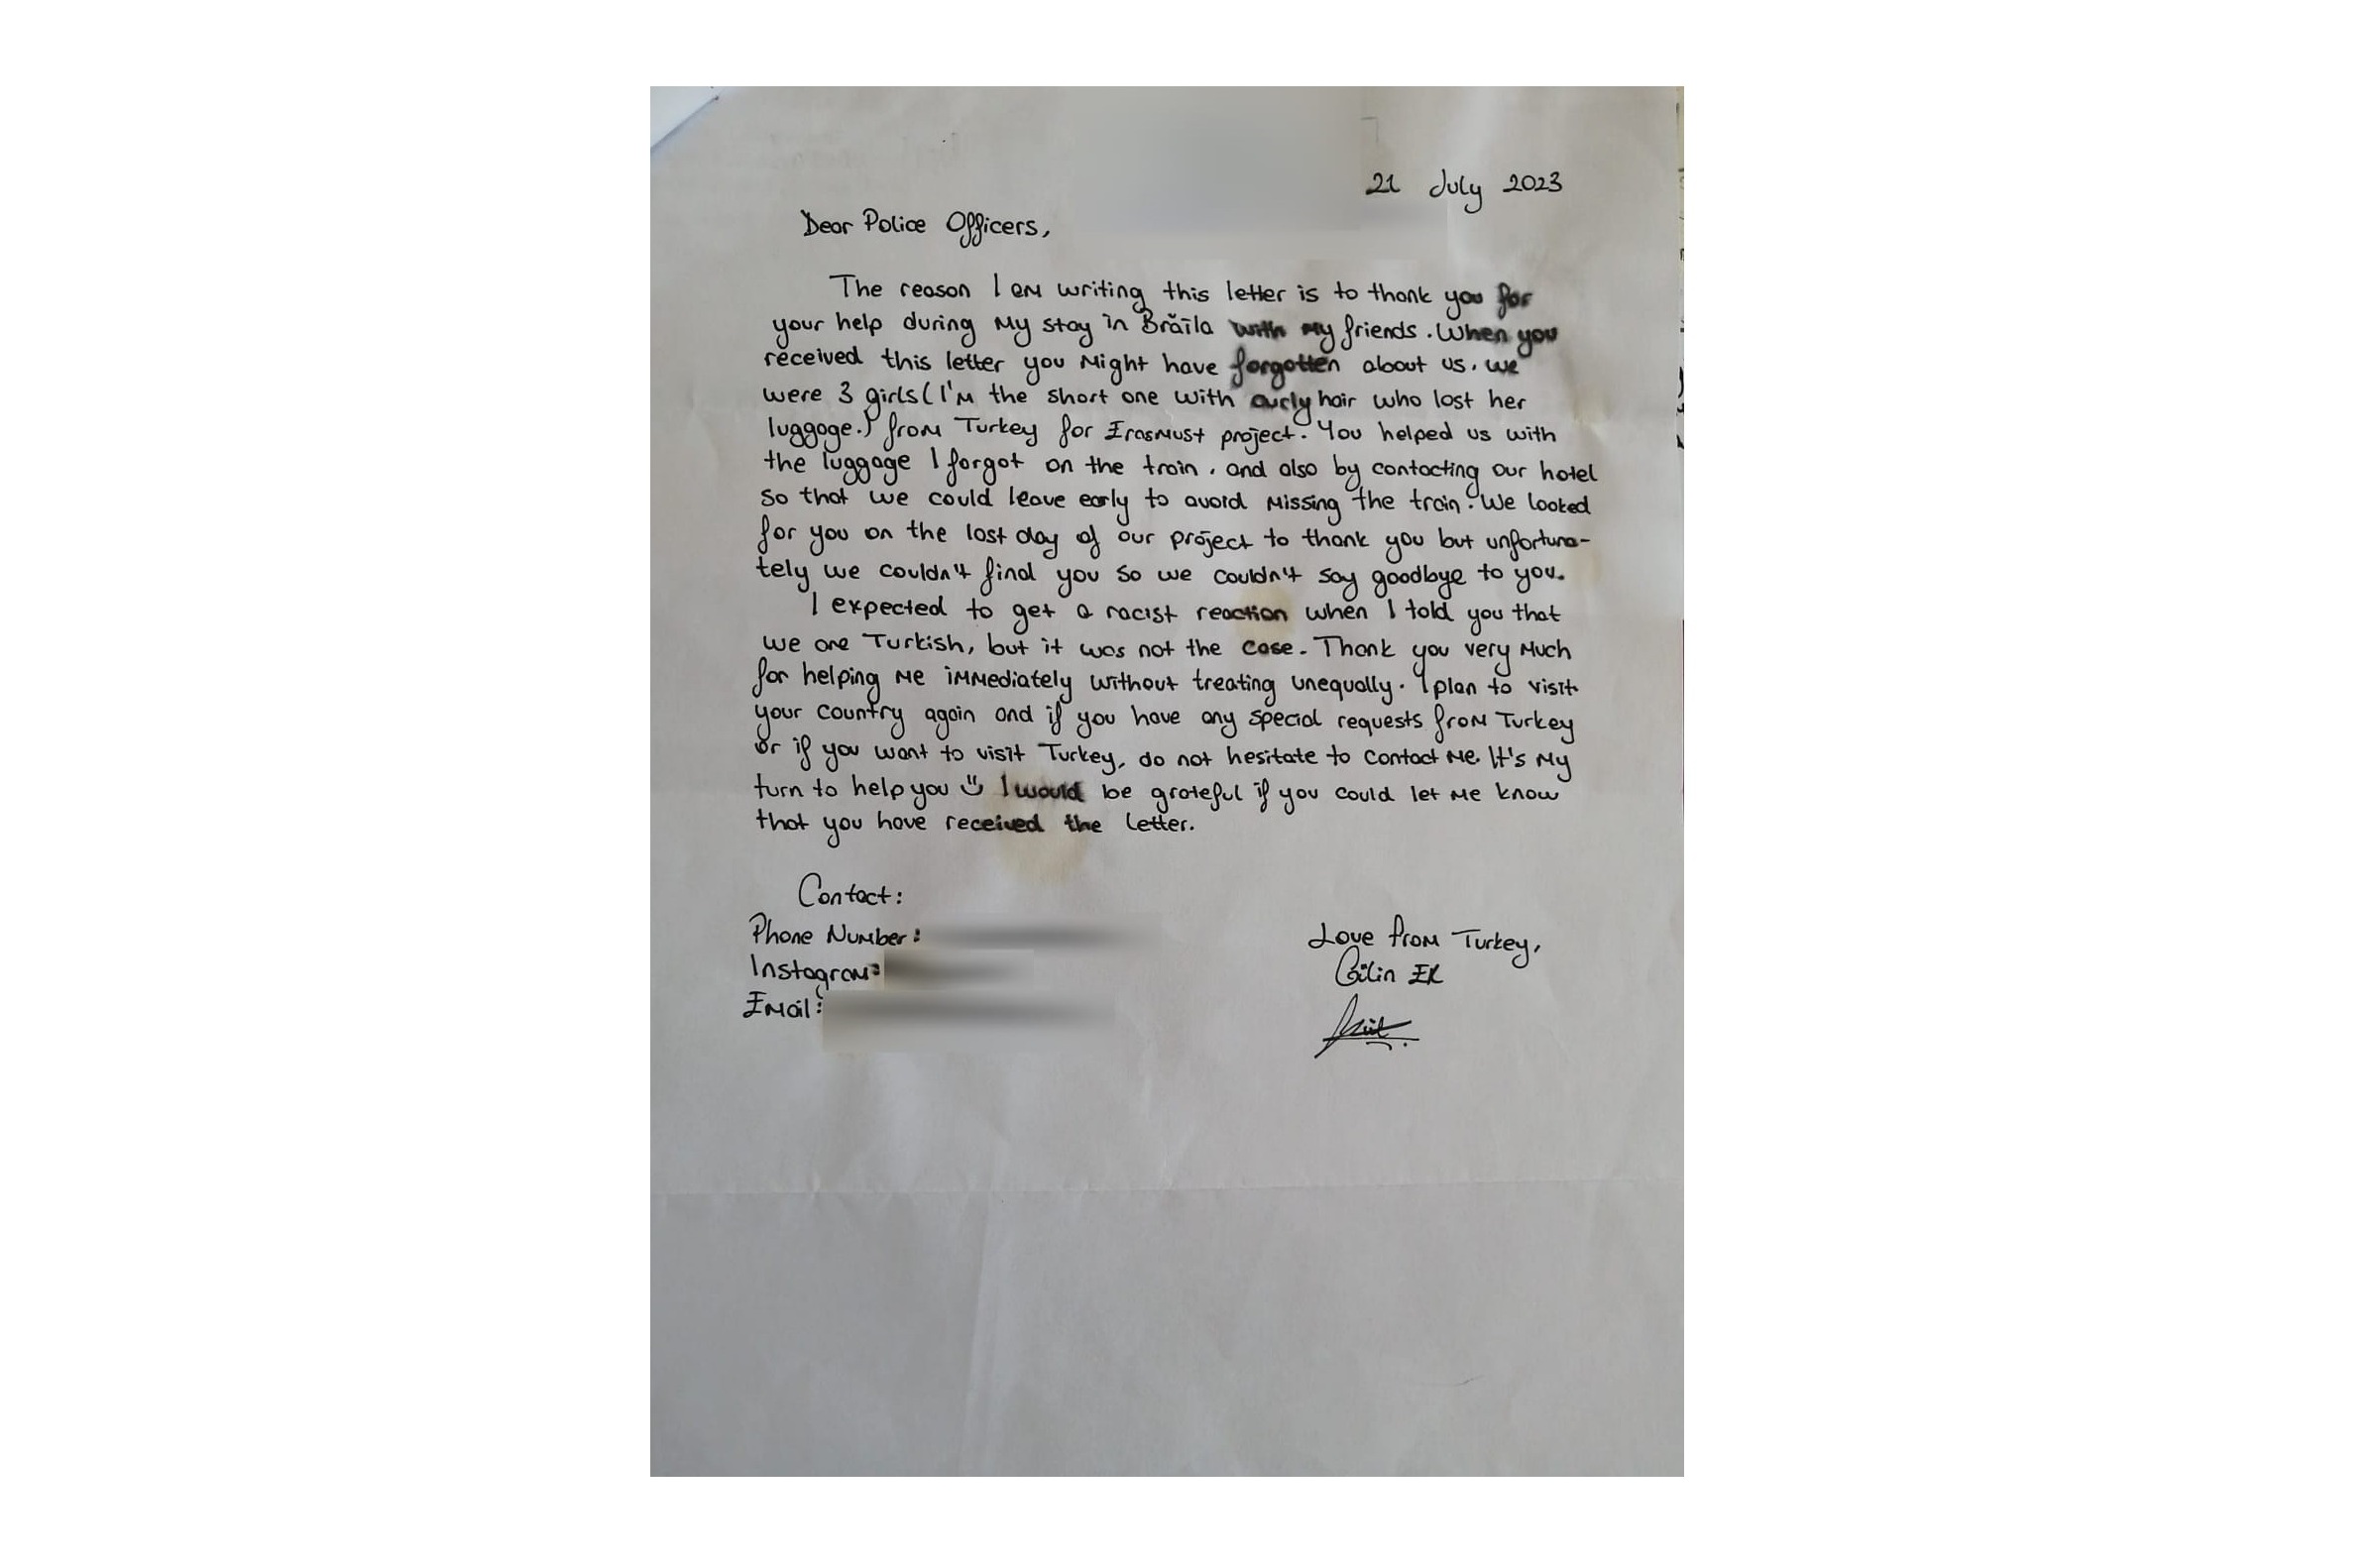 21 July 2023
Dear Police Officers,
The reason I am writing this letter is to thank you for
your help during my stay in Brăila with my friends. When you
received this letter you might have forgotten about us. We
were 3 girls (I'm the short one with curly hair who lost her
luggage.) from Turkey for Erasmust project. You helped us with
the luggage I forgot on the train. and also by contacting our hotel
so that we could leave early to avoid missing the train. We looked
for you on the last day of our project to thank you but unfortuna-
tely we couldn't find you so we couldn't say goodbye to you.
I expected to get a racist reaction when I told you that
we are Turkish, but it was not the case. Thank you very much
for helping me immediately without treating unequally. I plan to visit
your country again and if you have any special requests from Turkey
or if you want to visit Turkey, do not hesitate to contact me. It's my
turn to help you I would be grateful if you could let me know
that you have received the letter.
Contact:
Phone Number:
Instagram:
Email:
Love from Turkey,
EK